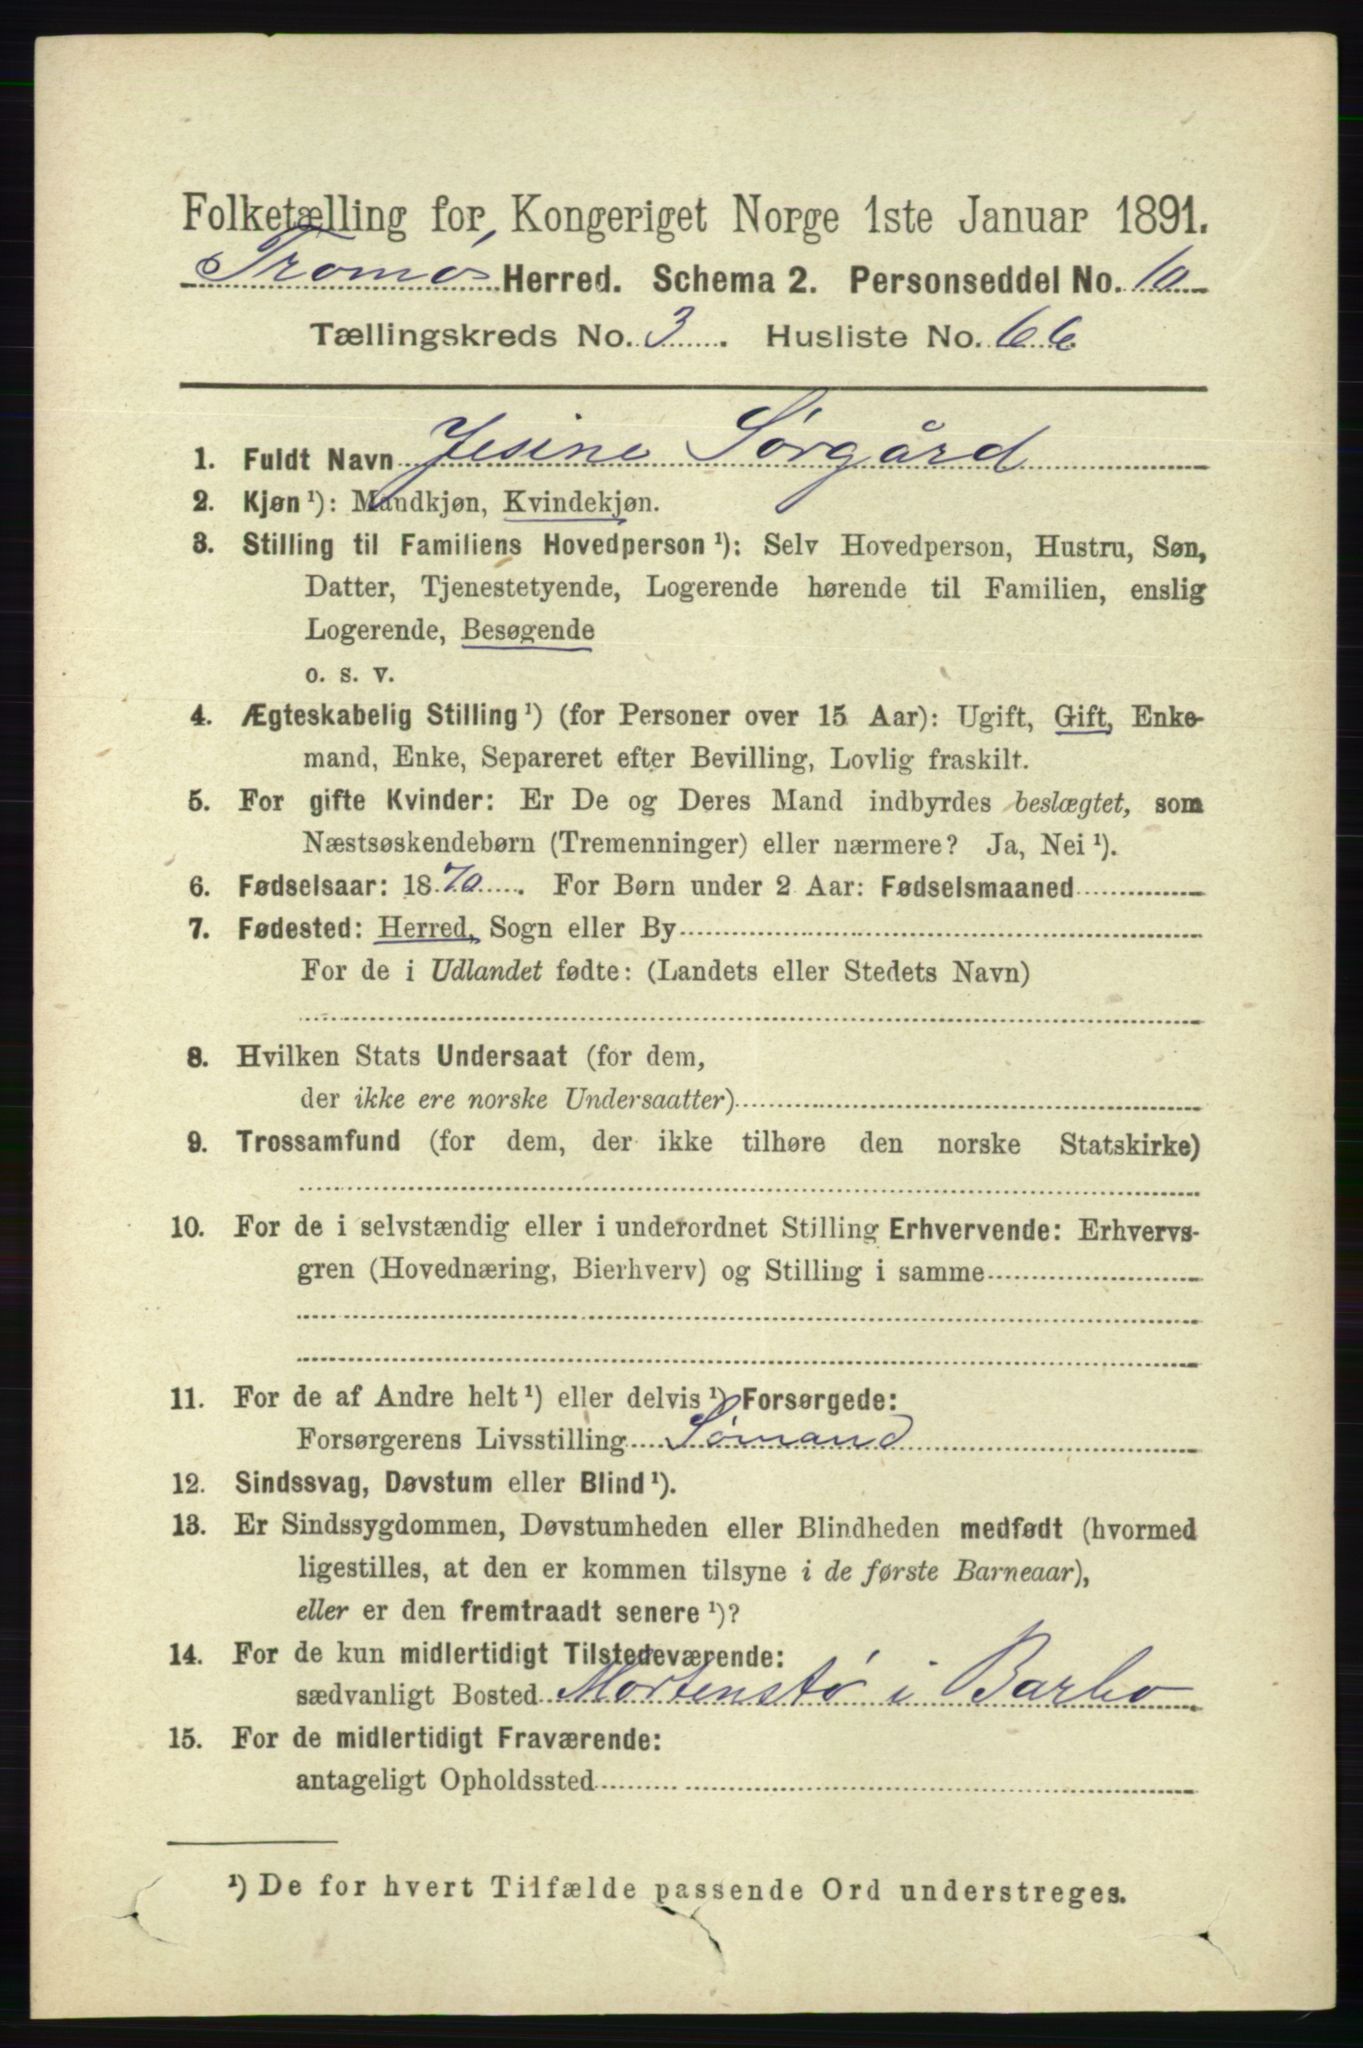 Folketælling for Kongeriget Norge 1ste Januar 1891.
Tromø Herred. Schema 2. Personseddel No. 10
Tællingskreds No. 3. Husliste No. 66
1. Fuldt Navn Jesine Sørgård
2. Kjøn ¹): Mandkjøn, Kvindekjøn.
3. Stilling til Familiens Hovedperson ¹): Selv Hovedperson, Hustru, Søn,
Datter, Tjenestetyende, Logerende hørende til Familien, enslig
Logerende, Besøgende
o. s. v.
4. Ægteskabelig Stilling ¹) (for Personer over 15 Aar): Ugift, Gift, Enke-
mand, Enke, Separeret efter Bevilling, Lovlig fraskilt.
5. For gifte Kvinder: Er De og Deres Mand indbyrdes beslægtet, som
Næstsøskendebørn (Tremenninger) eller nærmere? Ja, Nei ¹).
6. Fødselsaar: 1870. For Børn under 2 Aar: Fødselsmaaned
7. Fødested: Herred, Sogn eller By
For de i Udlandet fødte: (Landets eller Stedets Navn)
8. Hvilken Stats Undersaat (for dem,
der ikke ere norske Undersaatter)
9. Trossamfund (for dem, der ikke tilhøre den norske Statskirke)
10. For de i selvstændig eller i underordnet Stilling Erhvervende: Erhvervs-
gren (Hovednæring, Bierhverv) og Stilling i samme
11. For de af Andre helt ¹) eller delvis ¹) Forsørgede:
Forsørgerens Livsstilling Sømand
12. Sindssvag, Døvstum eller Blind ¹).
13. Er Sindssygdommen, Døvstumheden eller Blindheden medfødt (hvormed
ligestilles, at den er kommen tilsyne i de første Barneaar),
eller er den fremtraadt senere ¹)?
14. For de kun midlertidigt Tilstedeværende:
sædvanligt Bosted Mortenstø i Barbo
15. For de midlertidigt Fraværende:
antageligt Opholdssted
¹) De for hvert Tilfælde passende Ord understreges.